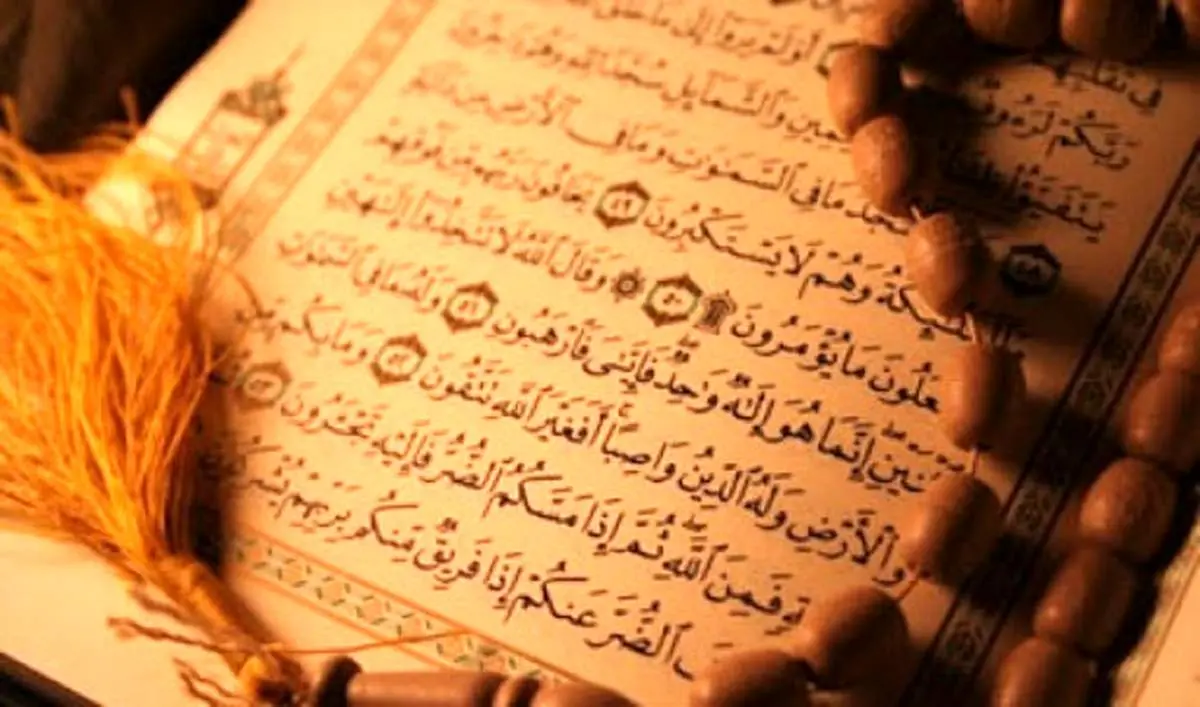 فِى تَقَلُّبِهِمْ
رَبَّكُمْ لَرَءُوفٌ أَوَلَمْ يَرَوْا۟ إِلَىٰ مَا خَلَقَ
يَتَفَيَّؤُا۟ ظِلَٰلُهُۥ وَٱلشَّمَآئِلِ سُجَّدًا لِّلَّهِ وَهُمْ دَٰخِرُونَ
٤٨ يَسْجُدُ مَا فِى ٱلسَّمَٰوَٰتِ وَمَا فِى ٱلْأَرْضِ مِن دَآبَّةٍ
وَٱلْمَلَٰٓئِكَةُ وَهُمْ لَا يَسْتَكْبِرُونَ ٤٩ يَخَافُونَ رَبَّهُم مِّن فَوْقِهِمْ
وَيَفْعَلُونَ مَا يُؤْمَرُونَ ۩ ٥٠ ۞ وَقَالَ ٱللَّهُ لَا تَتَّخِذُوٓا۟ إِلَٰهَيْنِ
ٱثْنَيْنِ إِنَّمَا هُوَ إِلَٰهٌ وَٰحِدٌ فَإِيَّٰىَ فَٱرْهَبُونِ ٥١ وَلَهُۥ مَا فِى ٱلسَّمَٰوَٰتِ
وَٱلْأَرْضِ وَلَهُ ٱلدِّينُ وَاصِبًا أَفَغَيْرَ ٱللَّهِ تَتَّقُونَ ٥٢ وَمَا بِكُم مِّن
فَمِنَ ٱللَّهِ ثُمَّ إِذَا مَسَّكُمُ ٱلضُّرُّ فَإِلَيْهِ تَجْـَٔرُونَ ٥٣
ٱلضُّرَّ عَنكُمْ إِذَا فَرِيقٌ مِّنكُم بِرَبِّهِمْ